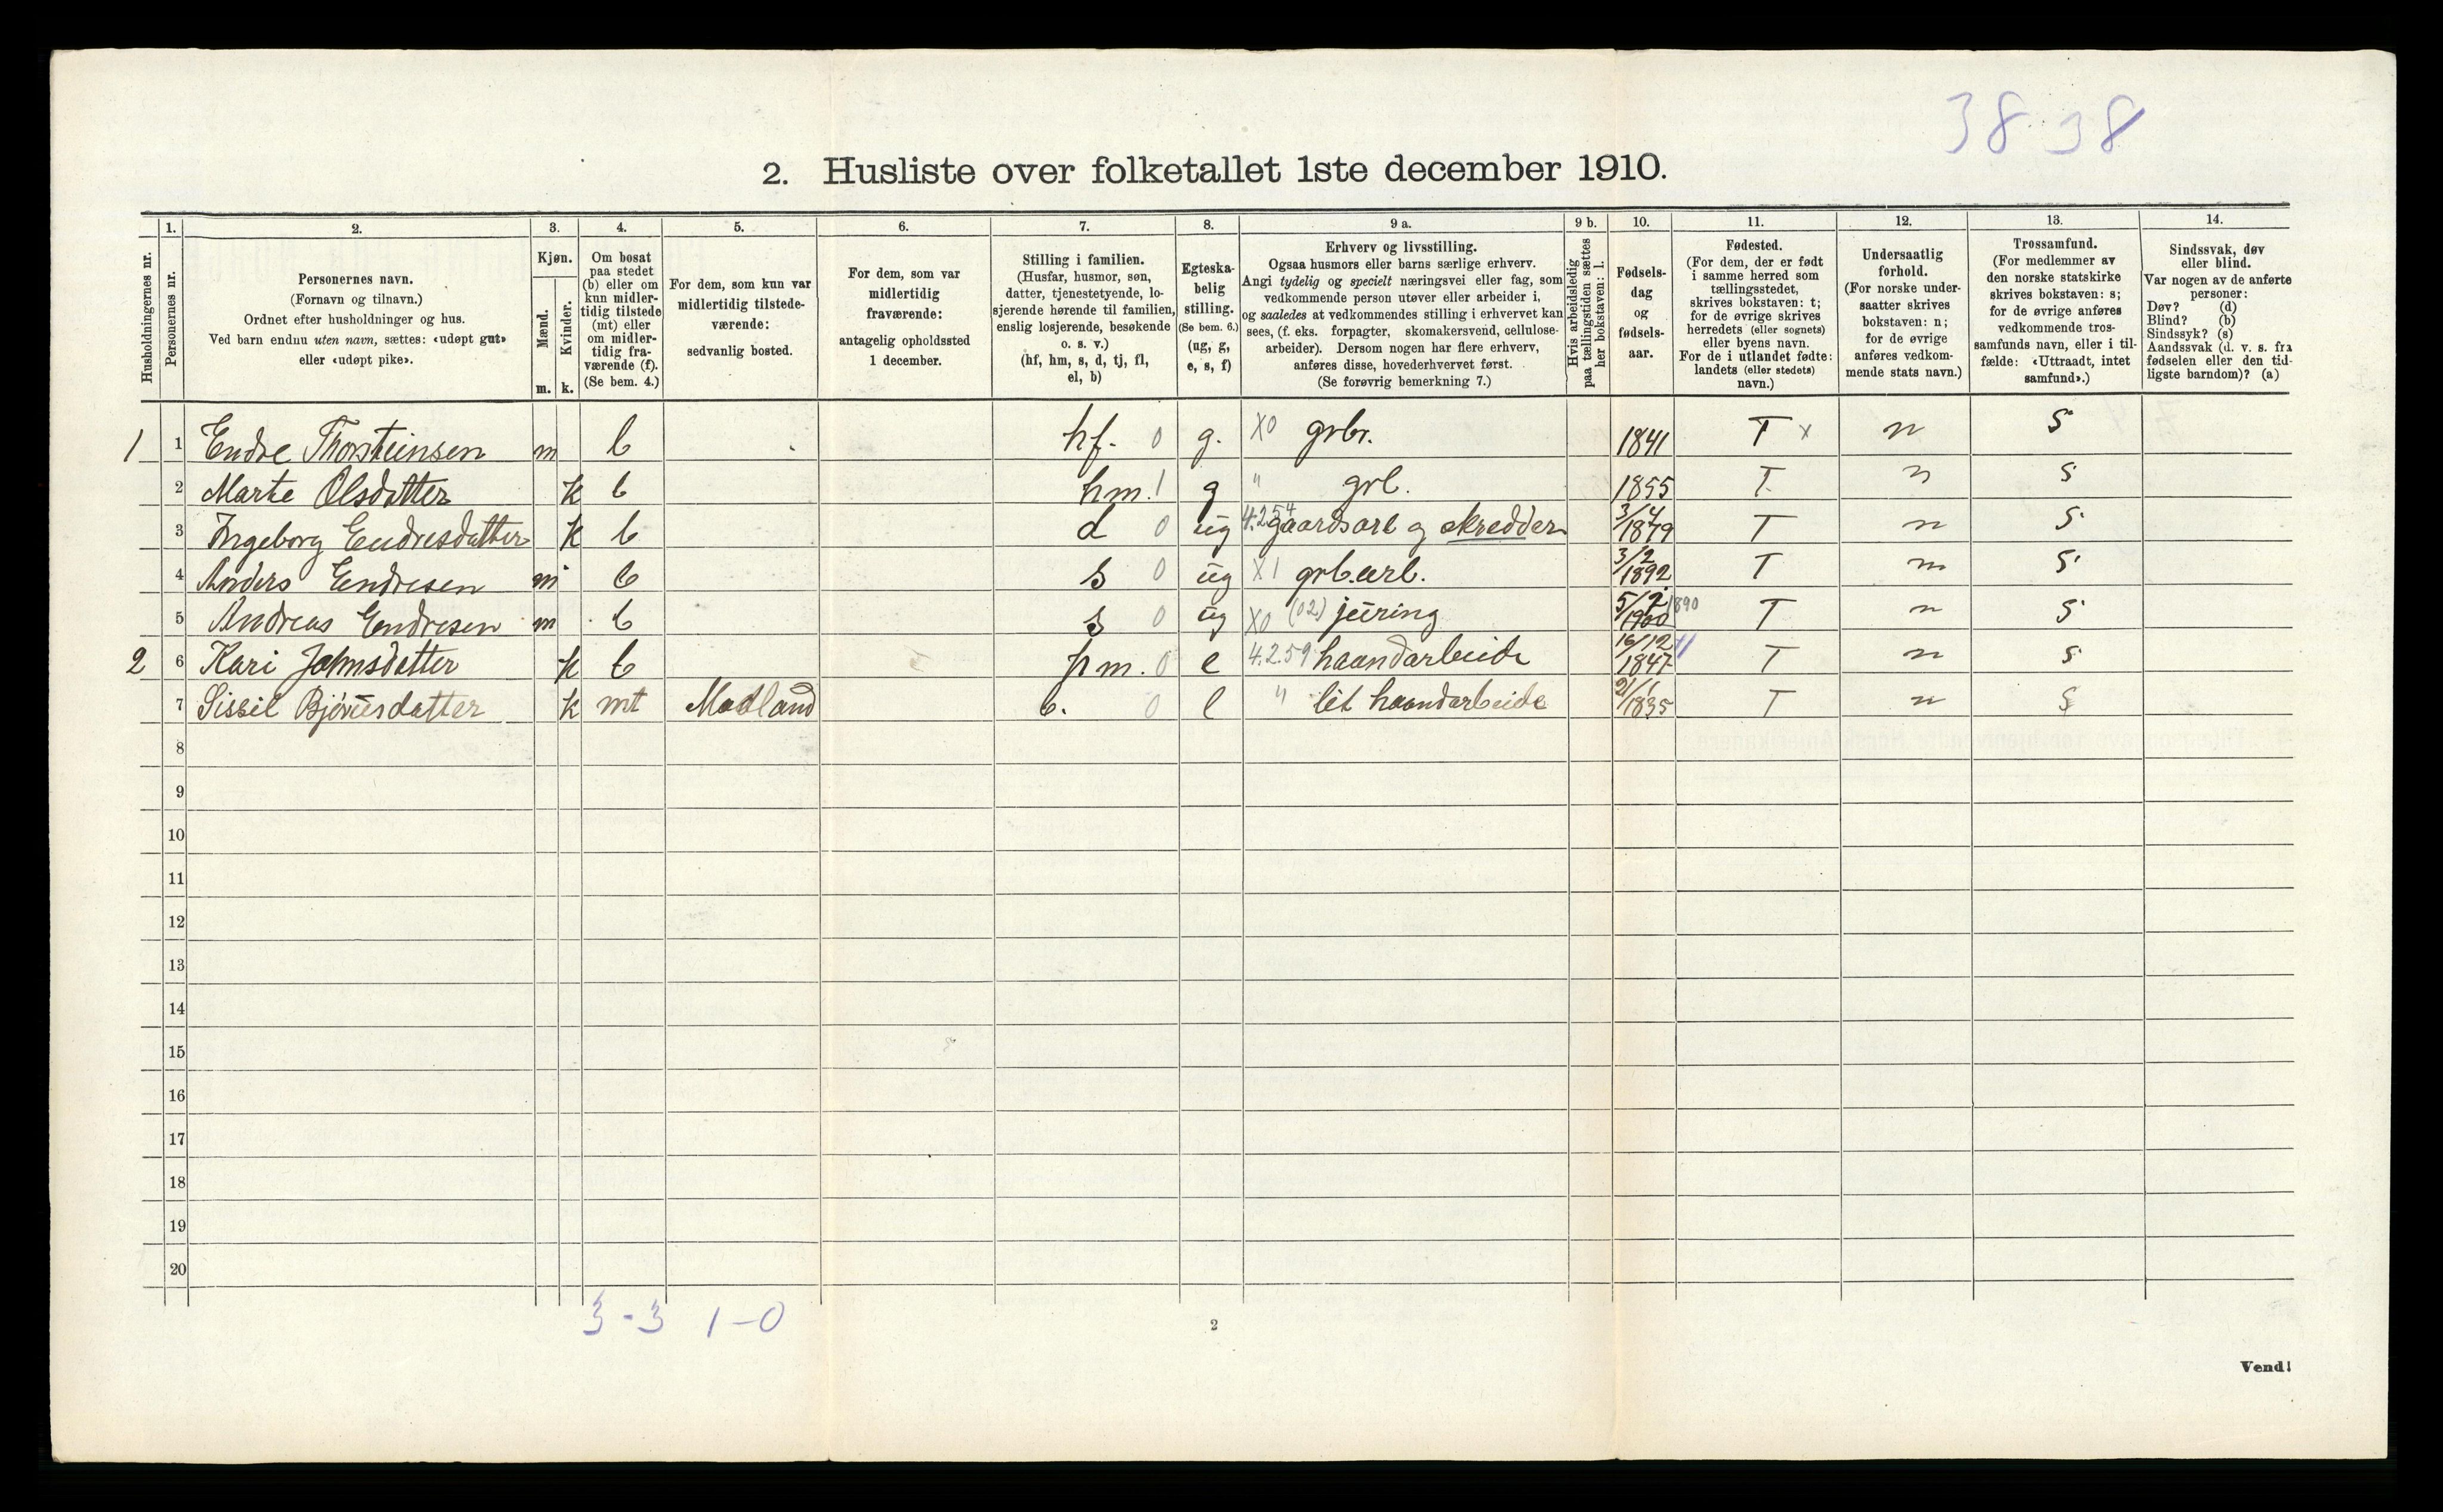 38 38
2. Husliste over folketallet 1ste december 1910.
Husholdningernes nr.
1. Personernes nr.
2. Personernes navn. (Fornavn og tilnavn.) Ordnet efter husholdninger og hus. Ved barn endnu uten navn, sættes: «udøpt gut» eller «udøpt pike».
3. Kjøn. Mænd. m. Kvinder. k.
4. Om bosat paa stedet (b) eller om kun midlertidig tilstede (mt) eller om midlertidig fraværende (f). (Se bem. 4.)
5. For dem, som kun var midlertidig tilstedeværende: sedvanlig bosted.
6. For dem, som var midlertidig fraværende: antagelig opholdssted 1 december.
7. Stilling i familien. (Husfar, husmor, søn, datter, tjenestetyende, losjerende hørende til familien, enslig losjerende, besøkende o. s. v.) (hf, hm, s, d, tj, fl, el, b)
8. Egteskabelig stilling. (Se bem. 6.) (ug, g, e, s, f)
9 a. Erhverv og livsstilling. Ogsaa husmors eller barns særlige erhverv. Angi tydelig og specielt næringsvei eller fag, som vedkommende person utøver eller arbeider i, og saaledes at vedkommendes stilling i erhvervet kan sees, (f. eks. forpagter, skomakersvend, cellulosearbeider). Dersom nogen har flere erhverv, anføres disse, hovederhvervet først. (Se forøvrig bemerkning 7.)
9 b. Hvis arbeidsledig paa tællingstiden sættes her bokstaven: l.
10. Fødselsdag og fødselsaar.
11. Fødested. (For dem, der er født i samme herred som tællingsstedet, skrives bokstaven: t; for de øvrige skrives herredets (eller sognets) eller byens navn. For de i utlandet fødte: landets (eller stedets) navn.)
12. Undersaatlig forhold. (For norske undersaatter skrives bokstaven: n; for de øvrige anføres vedkommende stats navn.)
13. Trossamfund. (For medlemmer av den norske statskirke skrives bokstaven: s; for de øvrige anføres vedkommende trossamfunds navn, eller i tilfælde: «Uttraadt, intet samfund».)
14. Sindssvak, døv eller blind. Var nogen av de anførte personer: Døv? (d) Blind? (b) Sindssyk? (s) Aandssvak (d. v. s. fra fødselen eller den tidligste barndom)? (a)
1 1 Endre Thorsteinsen m b hf. 0 g. X0 grbr. 1841 T x n S
2 Marte Olsdatter k b hm. 1 g " grb. 1855 T n S
3 Ingeborg Endresdatter k b d 0 ug 4.254 gaardsarb og skredder 3/4 1879 T n S
4 Anders Endresen m b s 0 ug X1 grb.arb. 3/2 1892 T n S
5 Andreas Endresen m b s 0 ug X0 (02) jæring 5/2 1900 1890 T n S
2 6 Kari Johnsdatter k b hm. 0 e 4.2.59 haandarbeide 16/12 1847 11 T n S
7 Sissil Bjørnsdatter k mt Madland b. 0 e " lit haandarbeide 21/1 1835 T n S
8
9
10
11
12
13
14
15
16
17
18
19
20
3-3 1-0
2
Vend!